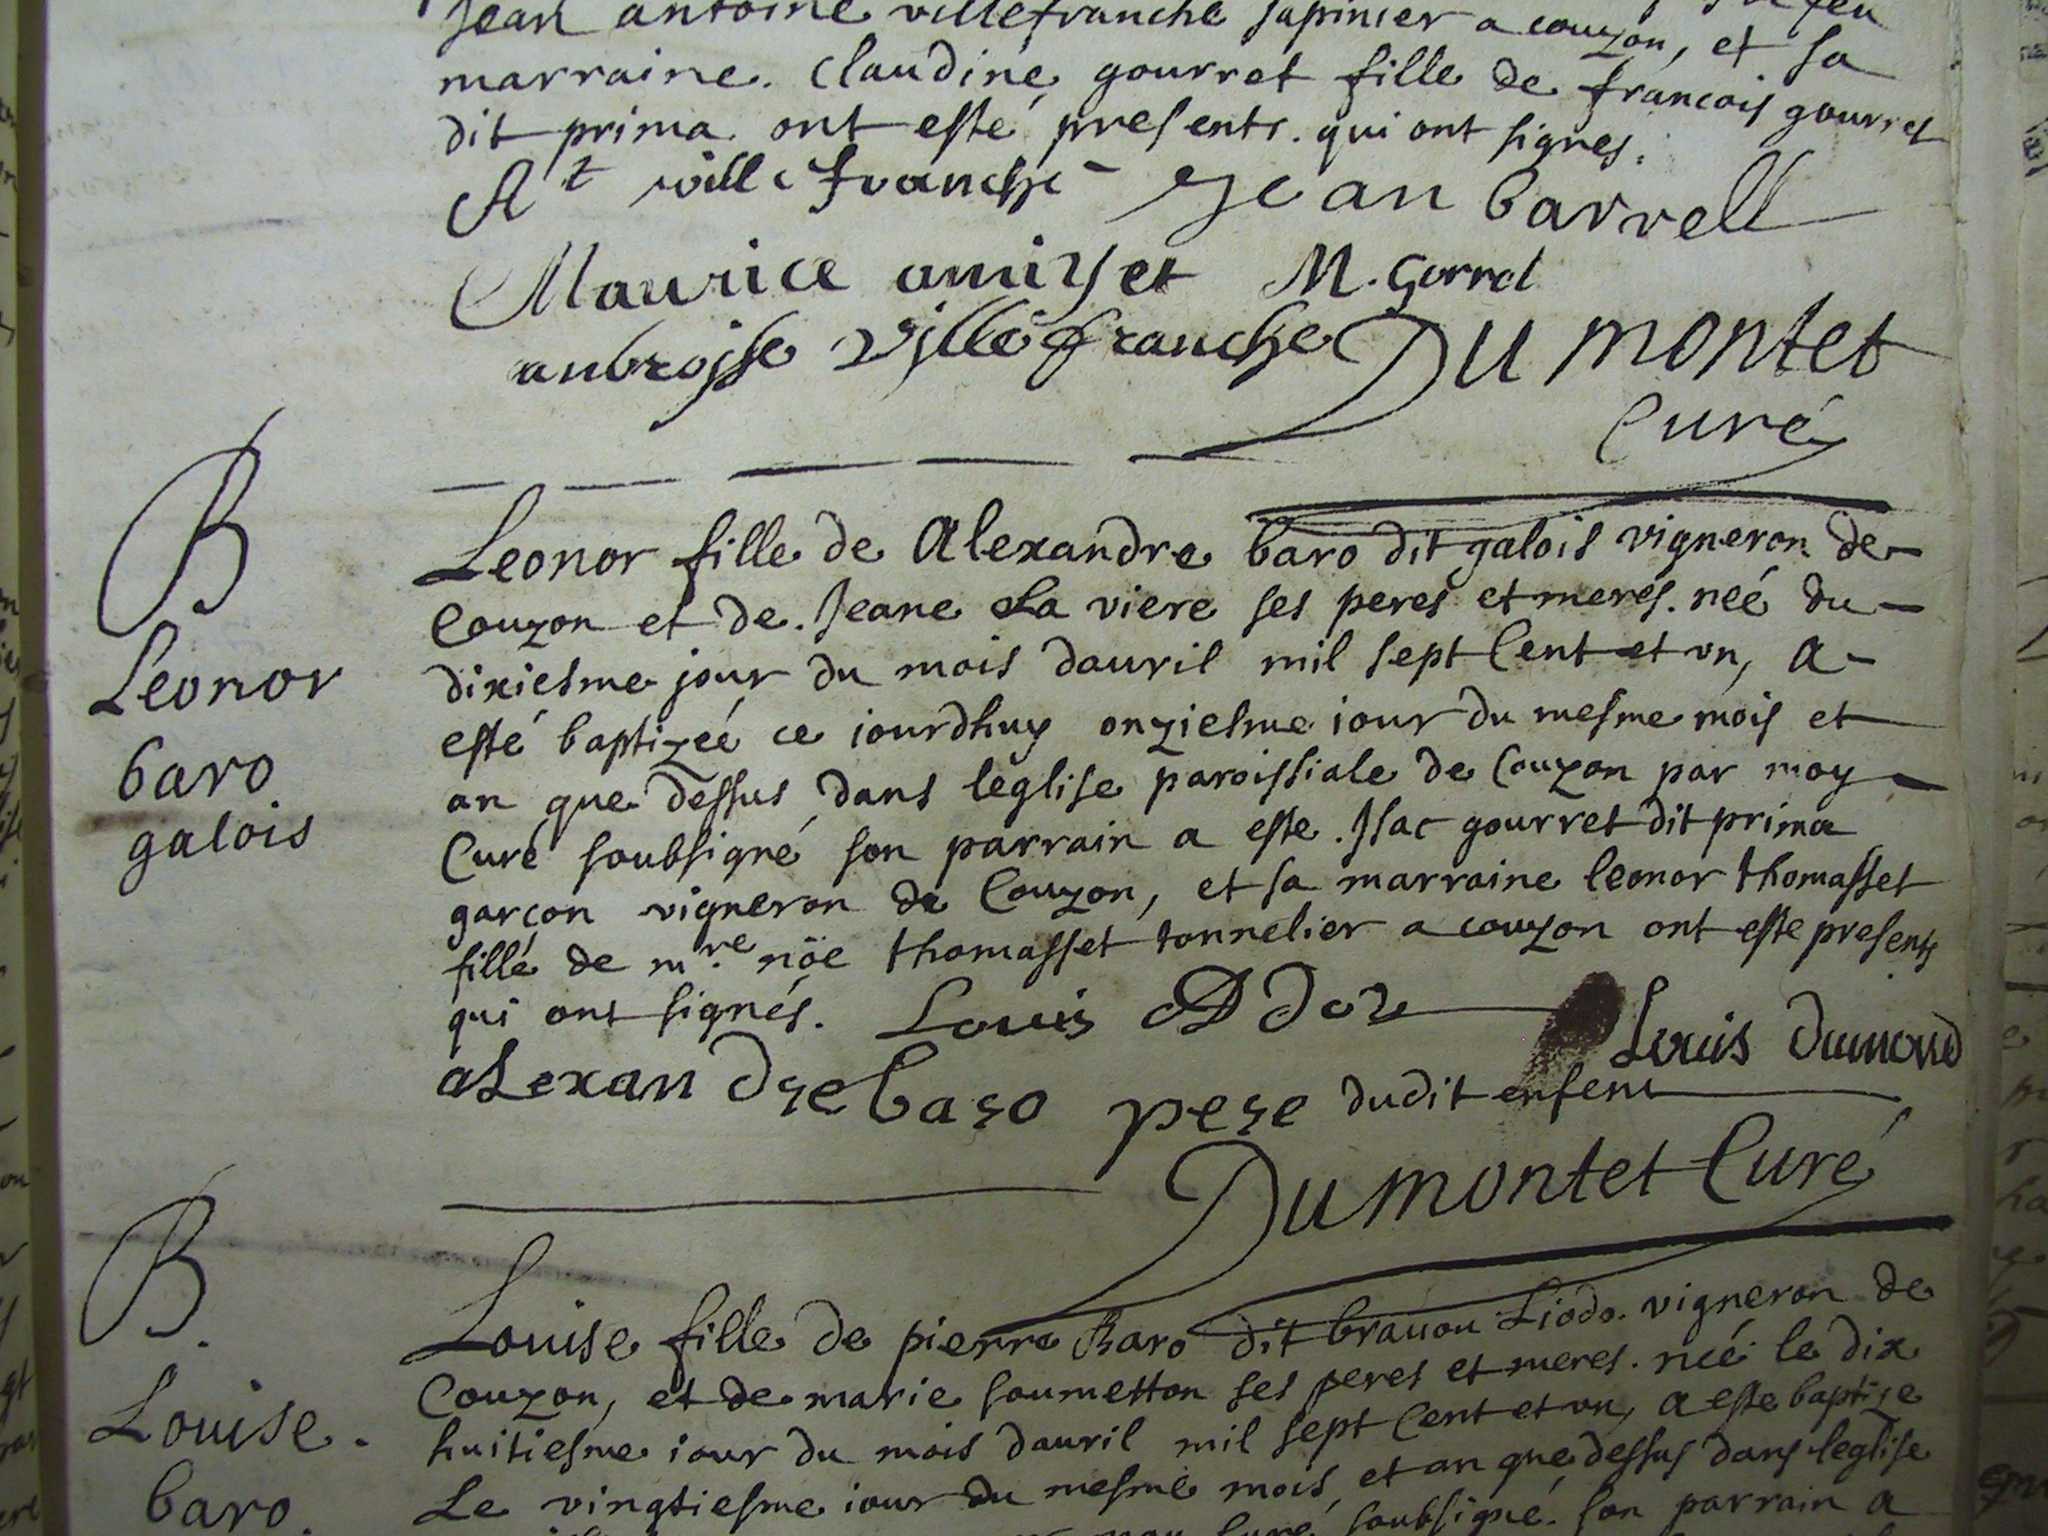 Jean antoine villefranche sapinier a couzon, et sa
marraine. Claudine gourret fille de francois gourret
dit prima ont esté presents. qui ont signes.
At villefranche Jean barrell
Maurice amiyet M. Gorret
anbroisse villefranche Du montet
Curé
B
Leonor
baro
galois
Leonor fille de Alexandre baro dit galois vigneron de
Couzon et de. Jeane La viere ses peres et merés. neé du
dixiesme jour du mois dauril mil sept Cent et vn, a
esté baptizeé ce iourdhuy onziesme iour du mesme mois et
an que dessus dans leglise paroissiale de Couzon par moy
Curé soubsigné son parrain a este. Isac gourret dit prima
garçon vigneron de Couzon, et sa marraine leonor thomasset
fillé de mre. nöe thomasset tonnelier a couzon ont este presents
qui ont signés. Louis Louis dumond
alexandre baro pere dudit enfent
Du montet Curé
B.
Louise.
baro.
Louise fille de pierre Baro dit brauou Liodo. vigneron de
Couzon, et de marie soumetton ses peres et meres. neé le dix
huitiesme iour du mois dauril mil sept Cent et vn, a este baptize
Le vingtiesme iour du mesme mois, et an que dessus dans leglise
Curé soubsigné. son parrain a